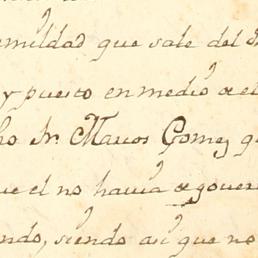 emildad que sale del
y puesto en medio de el
ho Sr. Marcos Gomez q
ue el no havia de gover
ndo, siendo asi que no